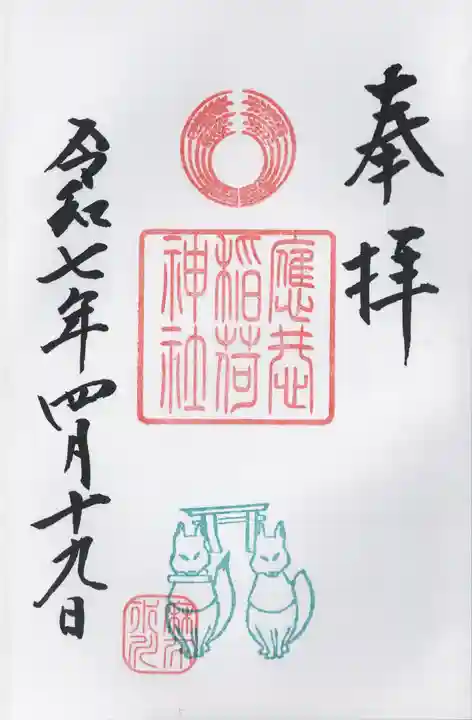 奉拝
應恭
稲荷
神社
令和七年四月十九日